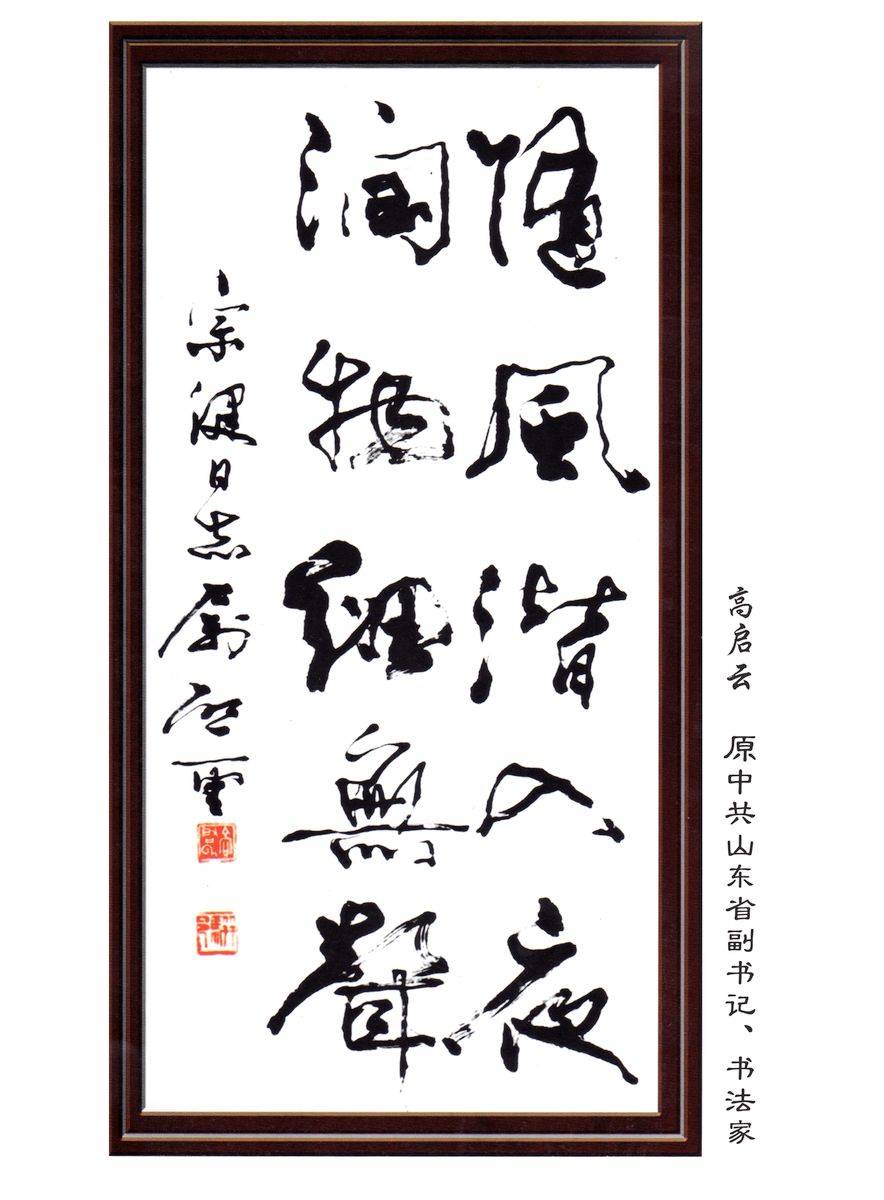 高启云 原中共山东省副书记、书法家
随風潜入夜
潤物細無聲
宗健同志 启雲